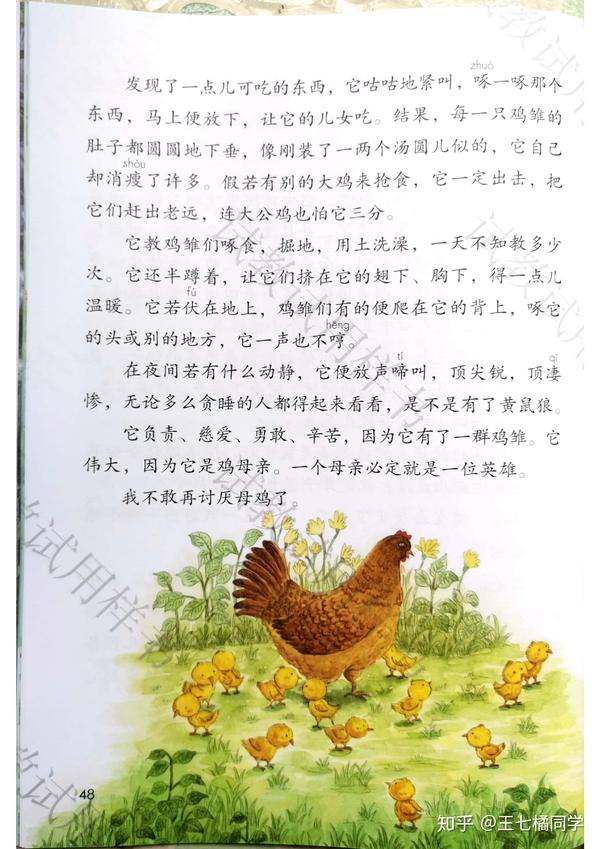 zhuó
发现了一点儿可吃的东西，它咕咕地紧叫，啄一啄那个
东西，马上便放下，让它的儿女吃。结果，每一只鸡雏的
肚子都圆圆地下垂，像刚装了一两个汤圆儿似的，它自己
shòu
却消瘦了许多。假若有别的大鸡来抢食，它一定出击，把
它们赶出老远，连大公鸡也怕它三分。
它教鸡雏们啄食，掘地，用土洗澡，一天不知教多少
次。它还半蹲着，让它们挤在它的翅下、胸下，得一点儿
fú
温暖。它若伏在地上，鸡雏们有的便爬在它的背上，啄它
hēng
的头或别的地方，它一声也不哼。
tí qī
在夜间若有什么动静，它便放声啼叫，顶尖锐，顶凄
惨，无论多么贪睡的人都得起来看看，是不是有了黄鼠狼。
它负责、慈爱、勇敢、辛苦，因为它有了一群鸡雏。它
伟大，因为它是鸡母亲。一个母亲必定就是一位英雄。
我不敢再讨厌母鸡了。
48
试教试用样书
知乎 @王七橘同学